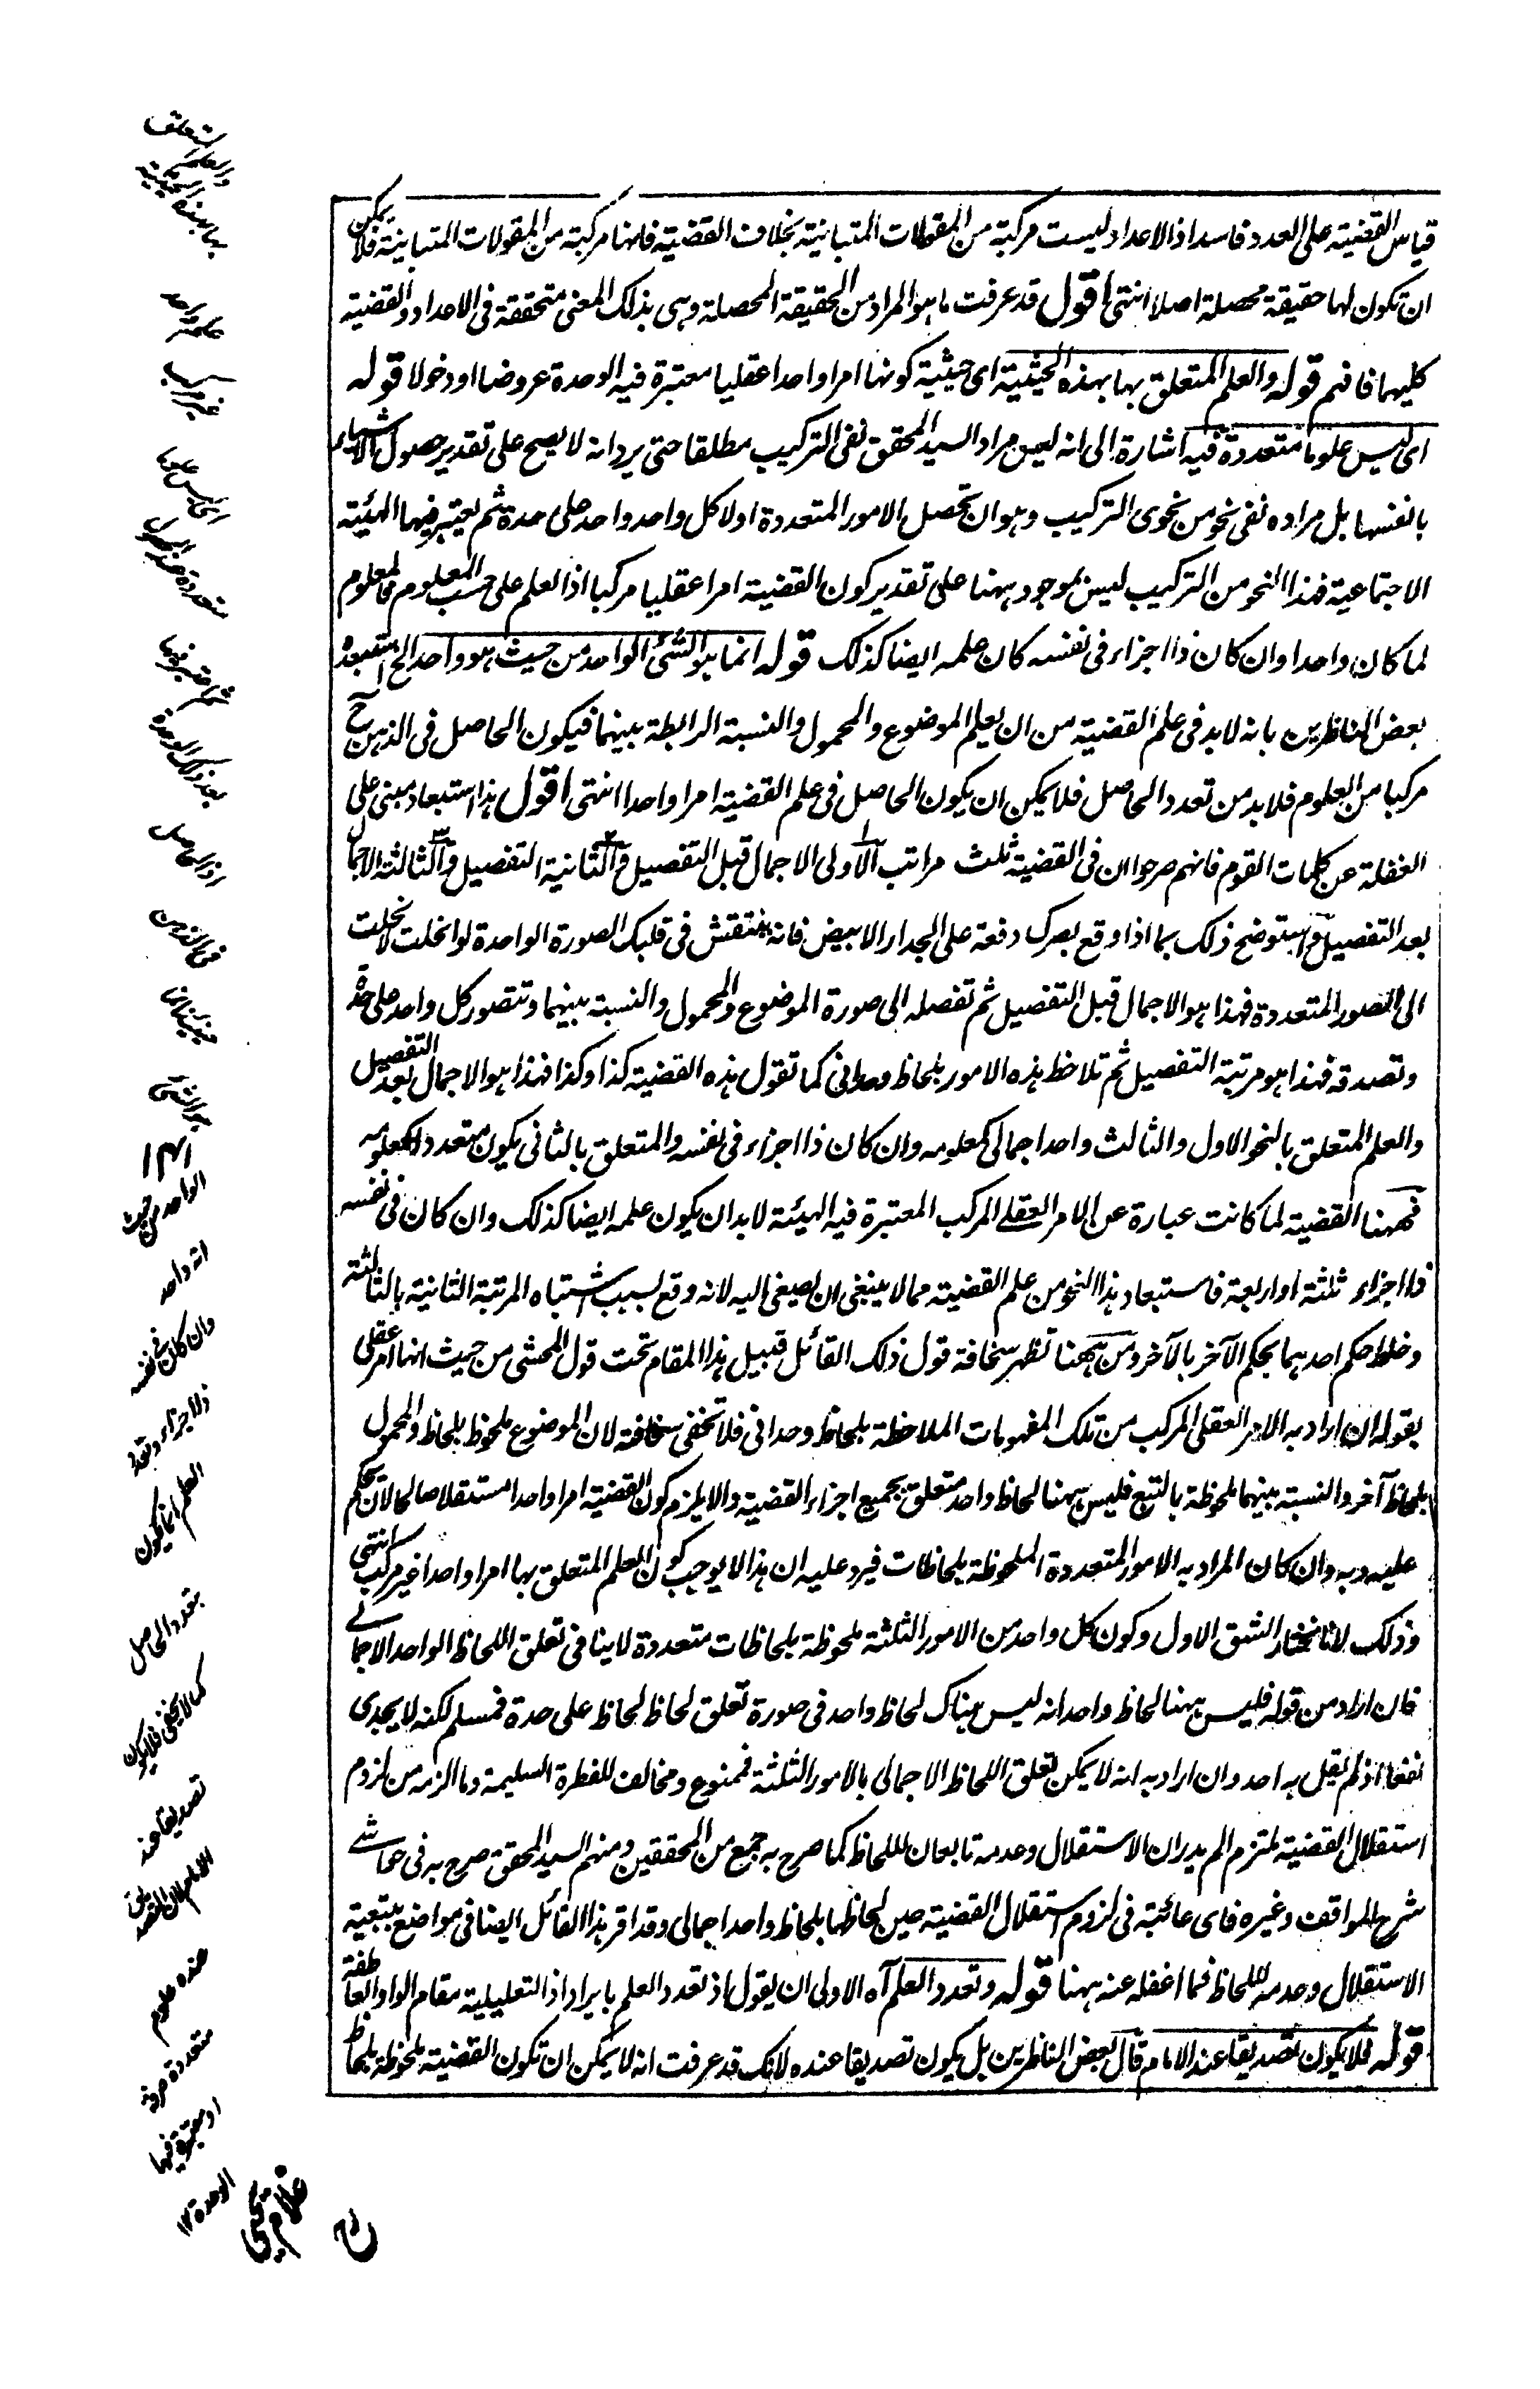 قياس القضية على العدد فاسد اذ الاعداد ليست مركبة من المقولات المتباينة بخلاف القضية فانها مركبة من المقولات المتباينة فلا يمكن
ان تكون لها حقيقة محصلة اصلا انتهى اقول قد عرفت ما هو المراد من الحقيقة المحصلة وهى بذلك المعنى متحققة فى الاعداد والقضية
كليهما فافهم قوله والعلم المتعلق بها بهذه الحيثية اى حيثية كونها امرا واحدا عقليا معتبرة فيه الوحدة عروضا او دخولا قوله
اى ليس علوما متعددة فيه اشارة الى انه ليس مراد السيد المحقق نفى التركيب مطلقا حتى يرد انه لا يصح على تقدير حصول الاشياء
بانفسها بل مراده نفى نحو من نحوى التركيب وهو ان تحصل الامور المتعددة اولا كل واحد واحد على حدة ثم يعتبر فيها الهيئة
الاجتماعية فهذا النحو من التركيب ليس بموجود ههنا على تقدير كون القضية امرا عقليا مركبا اذ العلم على حسب المعلوم فالمعلوم
لما كان واحدا وان كان ذا اجزاء فى نفسه كان علمه ايضا كذلك قوله انما هو الشئ الواحد من حيث هو واحد الخ استبعده
بعض الناظرين بانه لا بد فى علم القضية من ان يعلم الموضوع والمحمول والنسبة الرابطة بينهما فيكون الحاصل فى الذهن ح
مركبا من العلوم فلا بد من تعدد الحاصل فلا يمكن ان يكون الحاصل فى علم القضية امرا واحدا انتهى اقول هذا استبعاد مبنى على
الغفلة عن كلمات القوم فانهم صرحوا ان فى القضية ثلث مراتب الاولى الاجمال قبل التفصيل والثانية التفصيل والثالثة الاجمال
بعد التفصيل واستوضح ذلك بما اذا وقع بصرك دفعة على الجدار الابيض فانه ينتقش فى قلبك الصورة الواحدة لو انحلت لانحلت
الى الصور المتعددة فهذا هو الاجمال قبل التفصيل ثم تفصله الى صورة الموضوع والمحمول والنسبة بينهما وتتصور كل واحد على حدة
وتصدقه فهذا هو مرتبة التفصيل ثم تلاحظ هذه الامور بلحاظ وحدانى كما تقول هذه القضية كذا وكذا فهذا هو الاجمال بعد التفصيل
والعلم المتعلق بالنحو الاول والثالث واحد اجمالى كمعلومه وان كان ذا اجزاء فى نفسه والمتعلق بالثانى يكون متعددا كمعلومه
فههنا القضية لما كانت عبارة عن الامر العقلے المركب المعتبرة فيه الهيئة لا بد ان يكون علمه ايضا كذلك وان كان فى نفسه
ذا اجزاء ثلثة او اربعة فاستبعاد هذا النحو من علم القضية مما لا ينبغى ان يصغى اليه لانه وقع بسبب اشتباه المرتبة الثانية بالثالثة
وخلط حكم احدهما بحكم الآخر بالآخر ومن ههنا تظهر سخافة قول ذلك القائل قبيل هذا المقام تحت قول المحشى من حيث انها امر عقلى
بقوله ان اراد به الامر العقلى المركب من تلك المفهومات الملاحظة بلحاظ وحدانى فلا تخفى سخافته لان الموضوع ملحوظ بلحاظ والمحمول
بلحاظ آخر والنسبة بينهما ملحوظة بالتبع فليس ههنا لحاظ واحد متعلق بجميع اجزاء القضية والا يلزم كون القضية امرا واحدا مستقلا صالحا لان يحكم
عليه وبه وان كان المراد به الامور المتعددة الملحوظة بلحاظات فيرد عليه ان هذا لا يوجب كون العلم المتعلق بها امرا واحدا غير مركب انتهى
وذلك لانا نختار الشق الاول وكون كل واحد من الامور الثلثة ملحوظة بلحاظات متعددة لا ينافى تعلق اللحاظ الواحد الاجمالے
فان اراد من قوله فليس ههنا لحاظ واحد انه ليس هناك لحاظ واحد فى صورة تعلق لحاظ لحاظ على حدة فمسلم لكنه لا يجدى
نفعا اذ لم يقل به احد وان اراد به انه لا يمكن تعلق اللحاظ الاجمالى بالامور الثلثة فممنوع ومخالف للفطرة السليمة وما الزمه من لزوم
استقلال القضية ملتزم الم يدر ان الاستقلال وعدمه تابعان لللحاظ كما صرح به جمع من المحققين ومنهم السيد المحقق صرح به فى حواشے
شرح المواقف وغيره فاى عائبة فى لزوم استقلال القضية حين لحاظها بلحاظ واحد اجمالى وقد اقر هذا القائل ايضا فى مواضع بتبعية
الاستقلال وعدمه لللحاظ فما اغفله عنه ههنا قوله وتعدد العلم آه الاولى ان يقول اذ تعدد العلم بايراد اذ التعليلية مقام الواو العاطفة
قوله فلا يكون تصديقا عند الامام قال بعض الناظرين بل يكون تصديقا عنده لانك قد عرفت انه لا يمكن ان تكون القضية ملحوظة بلحاظ
والعلم المتعلق
بها بهذه الحيثية
علم واحد
غير مركب
اى ليس علوما
متعددة
ثم يعتبر فيها
بعد ذلك الوحدة
اذ الحاصل
فى الذهن
هو الشئ
الواحد من حيث
انه واحد
وان كان فى نفسه
ذا اجزاء وتعدد
العلم انما يكون
بتعدد الحاصل
كما لا يخفى فلا يكون
تصديقا عند
الامام لان التصديق
عنده علوم
متعددة معروضة
او معتبرة فيها
الوحدة ١٢
غلام يحيى